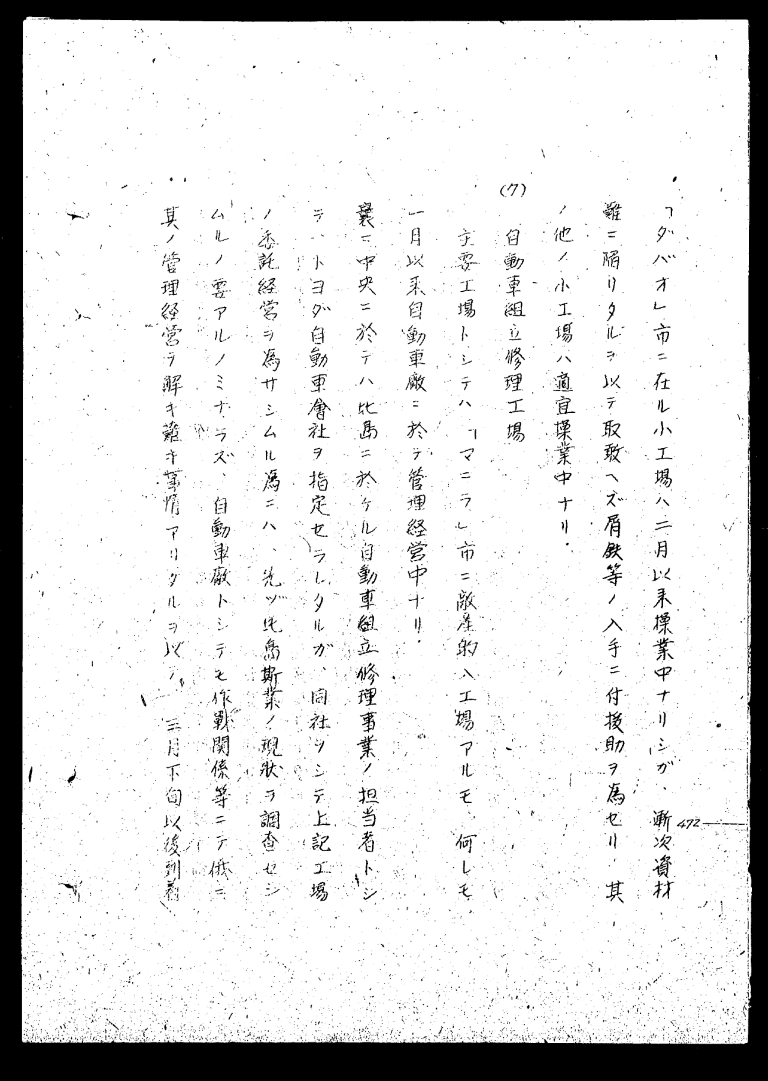 「ダバオ」市ニ在ル小工場ハ二月以来操業中ナリシガ、漸次資材
難ニ陥リタルヲ以テ取敢ヘズ屑鉄等ノ入手ニ付援助ヲ為セリ、其
ノ他ノ小工場ハ適宜操業中ナリ.
(7)
自動車組立修理工場
主要工場トシテハ「マニラ」市ニ敵産的八工場アルモ、何レモ
一月以来自動車廠ニ於テ管理経営中ナリ.
曩ニ中央ニ於テハ比島ニ於ケル自動車組立修理事業ノ担当者トシ
テ、トヨダ自動車會社ヲ指定セラレタルガ、同社ヲシテ上記工場
ノ委託経営ヲ為サシムル為ニハ、先ヅ比島斯業ノ現状ヲ調査セシ
ムルノ要アルノミナラズ、自動車廠トシテモ作戦関係等ニテ俄ニ
其ノ管理経営ヲ解キ難キ事情アリタルヲ以テ、三月下旬以後到着
472